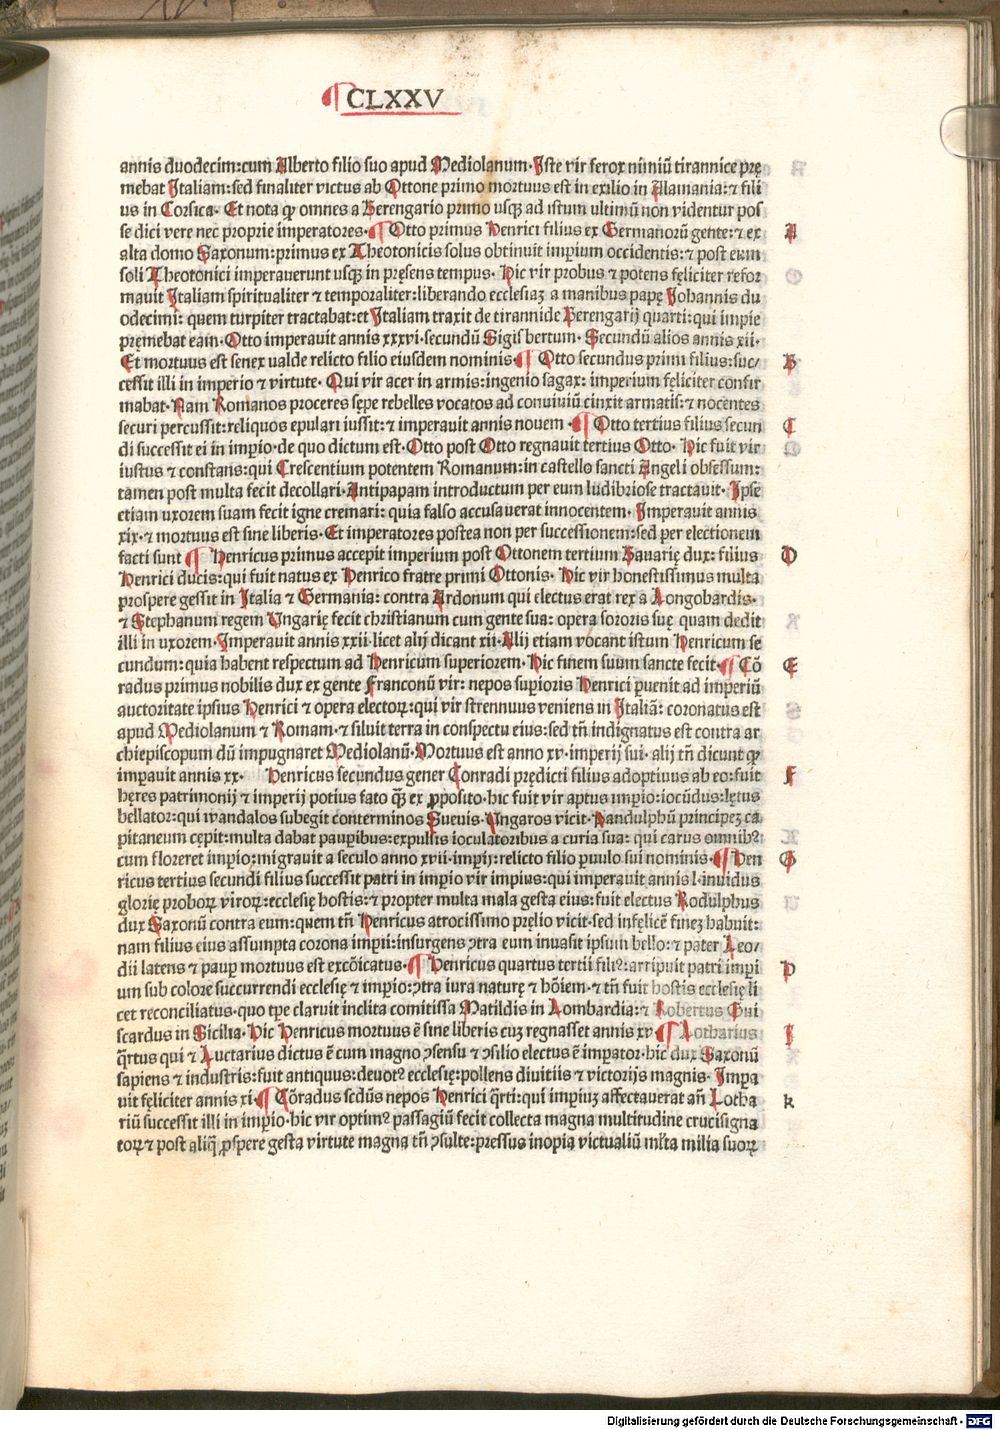 ¶ CLXXV
annis duodecim:cum Alberto filio suo apud Mediolanum. Iste vir ferox nimiũ tirannice prę
mebat Italiam:sed finaliter victus ab Ottone primo mortuus est in exilio in Alamania:⁊ fili
us in Corsica. Et nota ꝙ omnes a Berengario primo usqꝫ ad istum ultimũ non videntur pos
se dici vere nec proprie imperatores. ¶ Otto primus Henrici filius ex Germanorũ gente:⁊ ex
A
alta domo Saxonum:primus ex Theotonicis solus obtinuit imꝑium occidentis:⁊ post eum
soli Theotonici imperauerunt usqꝫ in pręsens tempus. Hic vir probus ⁊ potens fęliciter refor
mauit Italiam spiritualiter ⁊ temporaliter:liberando ecclesiaꝫ a manibus papę Iohannis du
odecimi: quem turpiter tractabat:et Italiam traxit de tirannide Berengarij quarti:qui impie
pręmebat eam. Otto imperauit annis xxxvi.secundũ Sigisbertum. Secundũ alios annis xii.
Et mortuus est senex ualde relicto filio eiusdem nominis. ¶ Otto secundus primi filius:suc/
B
cessit illi in imperio ⁊ virtute. Qui vir acer in armis:ingenio sagax: imperium fęliciter confir
mabat. Nam Romanos proceres sępe rebelles vocatos ad conuiuiũ cinxit armatis:⁊ nocentes
securi percussit:reliquos epulari iussit:⁊ imperauit annis nouem. ¶ Otto tertius filius secun
C
di successit ei in imꝑio.de quo dictum est. Otto post Otto regnauit tertius Otto. Hic fuit vir
iustus ⁊ constans:qui Crescentium potentem Romanum:in castello sancti Angeli obsessum:
tamen post multa fecit decollari. Antipapam introductum per eum ludibriose tractauit. Ipse
etiam uxorem suam fecit igne cremari: quia falso accusauerat innocentem. Imperauit annis
xix.⁊ mortuus est sine liberis. Et imperatores postea non per successionem:sed per electionem
facti sunt ¶ Henricus primus accepit imperium post Ottonem tertium Bauarię dux: filius
D
Henrici ducis:qui fuit natus ex Henrico fratre primi Ottonis. Hic vir honestissimus multa
prospere gessit in Italia ⁊ Germania: contra Ardonum qui electus erat rex a Longobardis.
⁊ Stephanum regem Ungarię fecit christianum cum gente sua: opera sororis suę quam dedit
illi in uxorem. Imperauit annis xxii.licet alij dicant xii. Alij etiam vocant istum Henricum se
cundum:quia habent respectum ad Henricum superiorem. Hic finem suum sancte fecit. ¶ Cõ
E
radus primus nobilis dux ex gente Franconũ vir: nepos suꝑioris Henrici ꝑuenit ad imperiũ
auctoritate ipsius Henrici ⁊ opera electoꝝ:qui vir strennuus veniens in Italiã: coronatus est
apud Mediolanum ⁊ Romam.⁊ siluit terra in conspectu eius:sed tñ indignatus est contra ar
chiepiscopum dũ impugnaret Mediolanũ. Mortuus est anno xv.imperij sui. alij tñ dicunt ꝙ
imꝑauit annis xx. Henricus secundus gener Conradi prędicti filius adoptiuus ab eo:fuit
F
hęres patrimonij ⁊ imperij potius fato q̃ꝫ ex ꝓposito.hic fuit vir aptus imꝑio:iocũdus:lętus
bellator:qui wandalos subegit conterminos Sueuis. Ungaros vicit. Pandulphũ principeꝫ ca
pitaneum cępit:multa dabat pauꝑibus:expulsis ioculatoribus a curia sua: qui carus omnibꝰ
cum floreret imꝑio:migrauit a seculo anno xvii.imꝑij:relicto filio ꝑuulo sui nominis. ¶ Hen
G
ricus tertius secundi filius successit patri in imꝑio vir impius:qui imperauit annis l.inuidus
glorię proboꝝ viroꝝ:ecclesię hostis:⁊ propter multa mala gesta eius:fuit electus Rodulphus
dux Saxonũ contra eum:quem tñ Henricus atrocissimo pręlio vicit.sed infęlicẽ fineꝫ habuit:
nam filius eius assumpta corona imꝑii:insurgens ↄtra eum inuasit ipsum bello:⁊ pater Leo/
dii latens ⁊ pauꝑ mortuus est excõicatus. ¶ Henricus quartus tertii filiꝰ:arripuit patri imꝑi
H
um sub colore succurrendi ecclesię ⁊ imꝑio:ↄtra iura naturę ⁊ hõiem.⁊ tñ fuit hostis ecclesię li
cet reconciliatus.quo tꝑe claruit inclita comitissa Matildis in Lombardia:⁊ Robertus Gui
scardus in Sicilia. Hic Henricus mortuus ẽ sine liberis cuꝫ regnasset annis xv ¶ Lotharius
I
q̃rtus qui ⁊ Luctarius dictus ẽ cum magno ↄsensu ⁊ ↄsilio electus ẽ imꝑator.hic dux Saxonũ
sapiens ⁊ industris:fuit antiquus:deuotꝰ ecclesię:pollens diuitiis ⁊ victorijs magnis. Imꝑa
uit fęliciter annis xi. ¶ Cõradus scđus nepos Henrici q̃rti:qui imꝑiuꝫ affectauerat añ Lotha
k
riũ successit illi in imꝑio.hic vir optimꝰ passagiũ fecit collecta magna multitudine crucisigna
toꝝ ⁊ post aliq̃ ꝓspere gesta virtute magna tñ ↄsulte:pressus inopia victualiũ mĺta milia suoꝝ
Digitalisierung gefördert durch die Deutsche Forschungsgemeinschaft - DFG